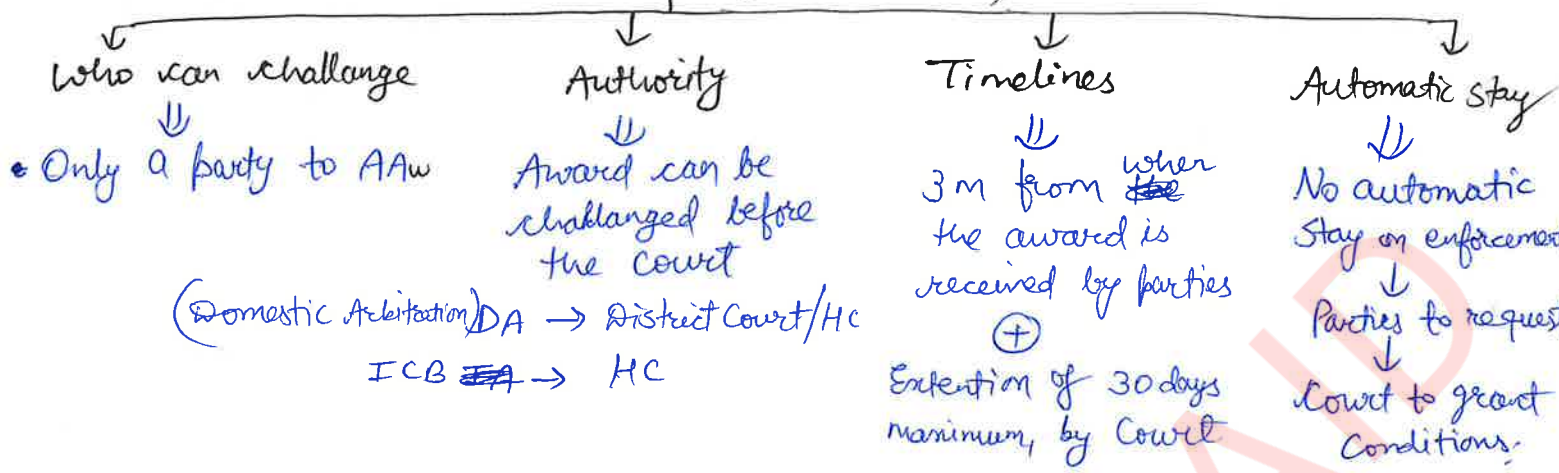 Who can challange
Only a party to AAw
Authority
Award can be
challanged before
the court
(Domestic Arbitration) DA → District Court/HC
ICB → HC
Timelines
3m from when
the award is
received by parties
+
Extention of 30 days
maximum, by Court
Automatic stay
No automatic
Stay on enforcemen
Parties to reques
Court to grant
Conditions.